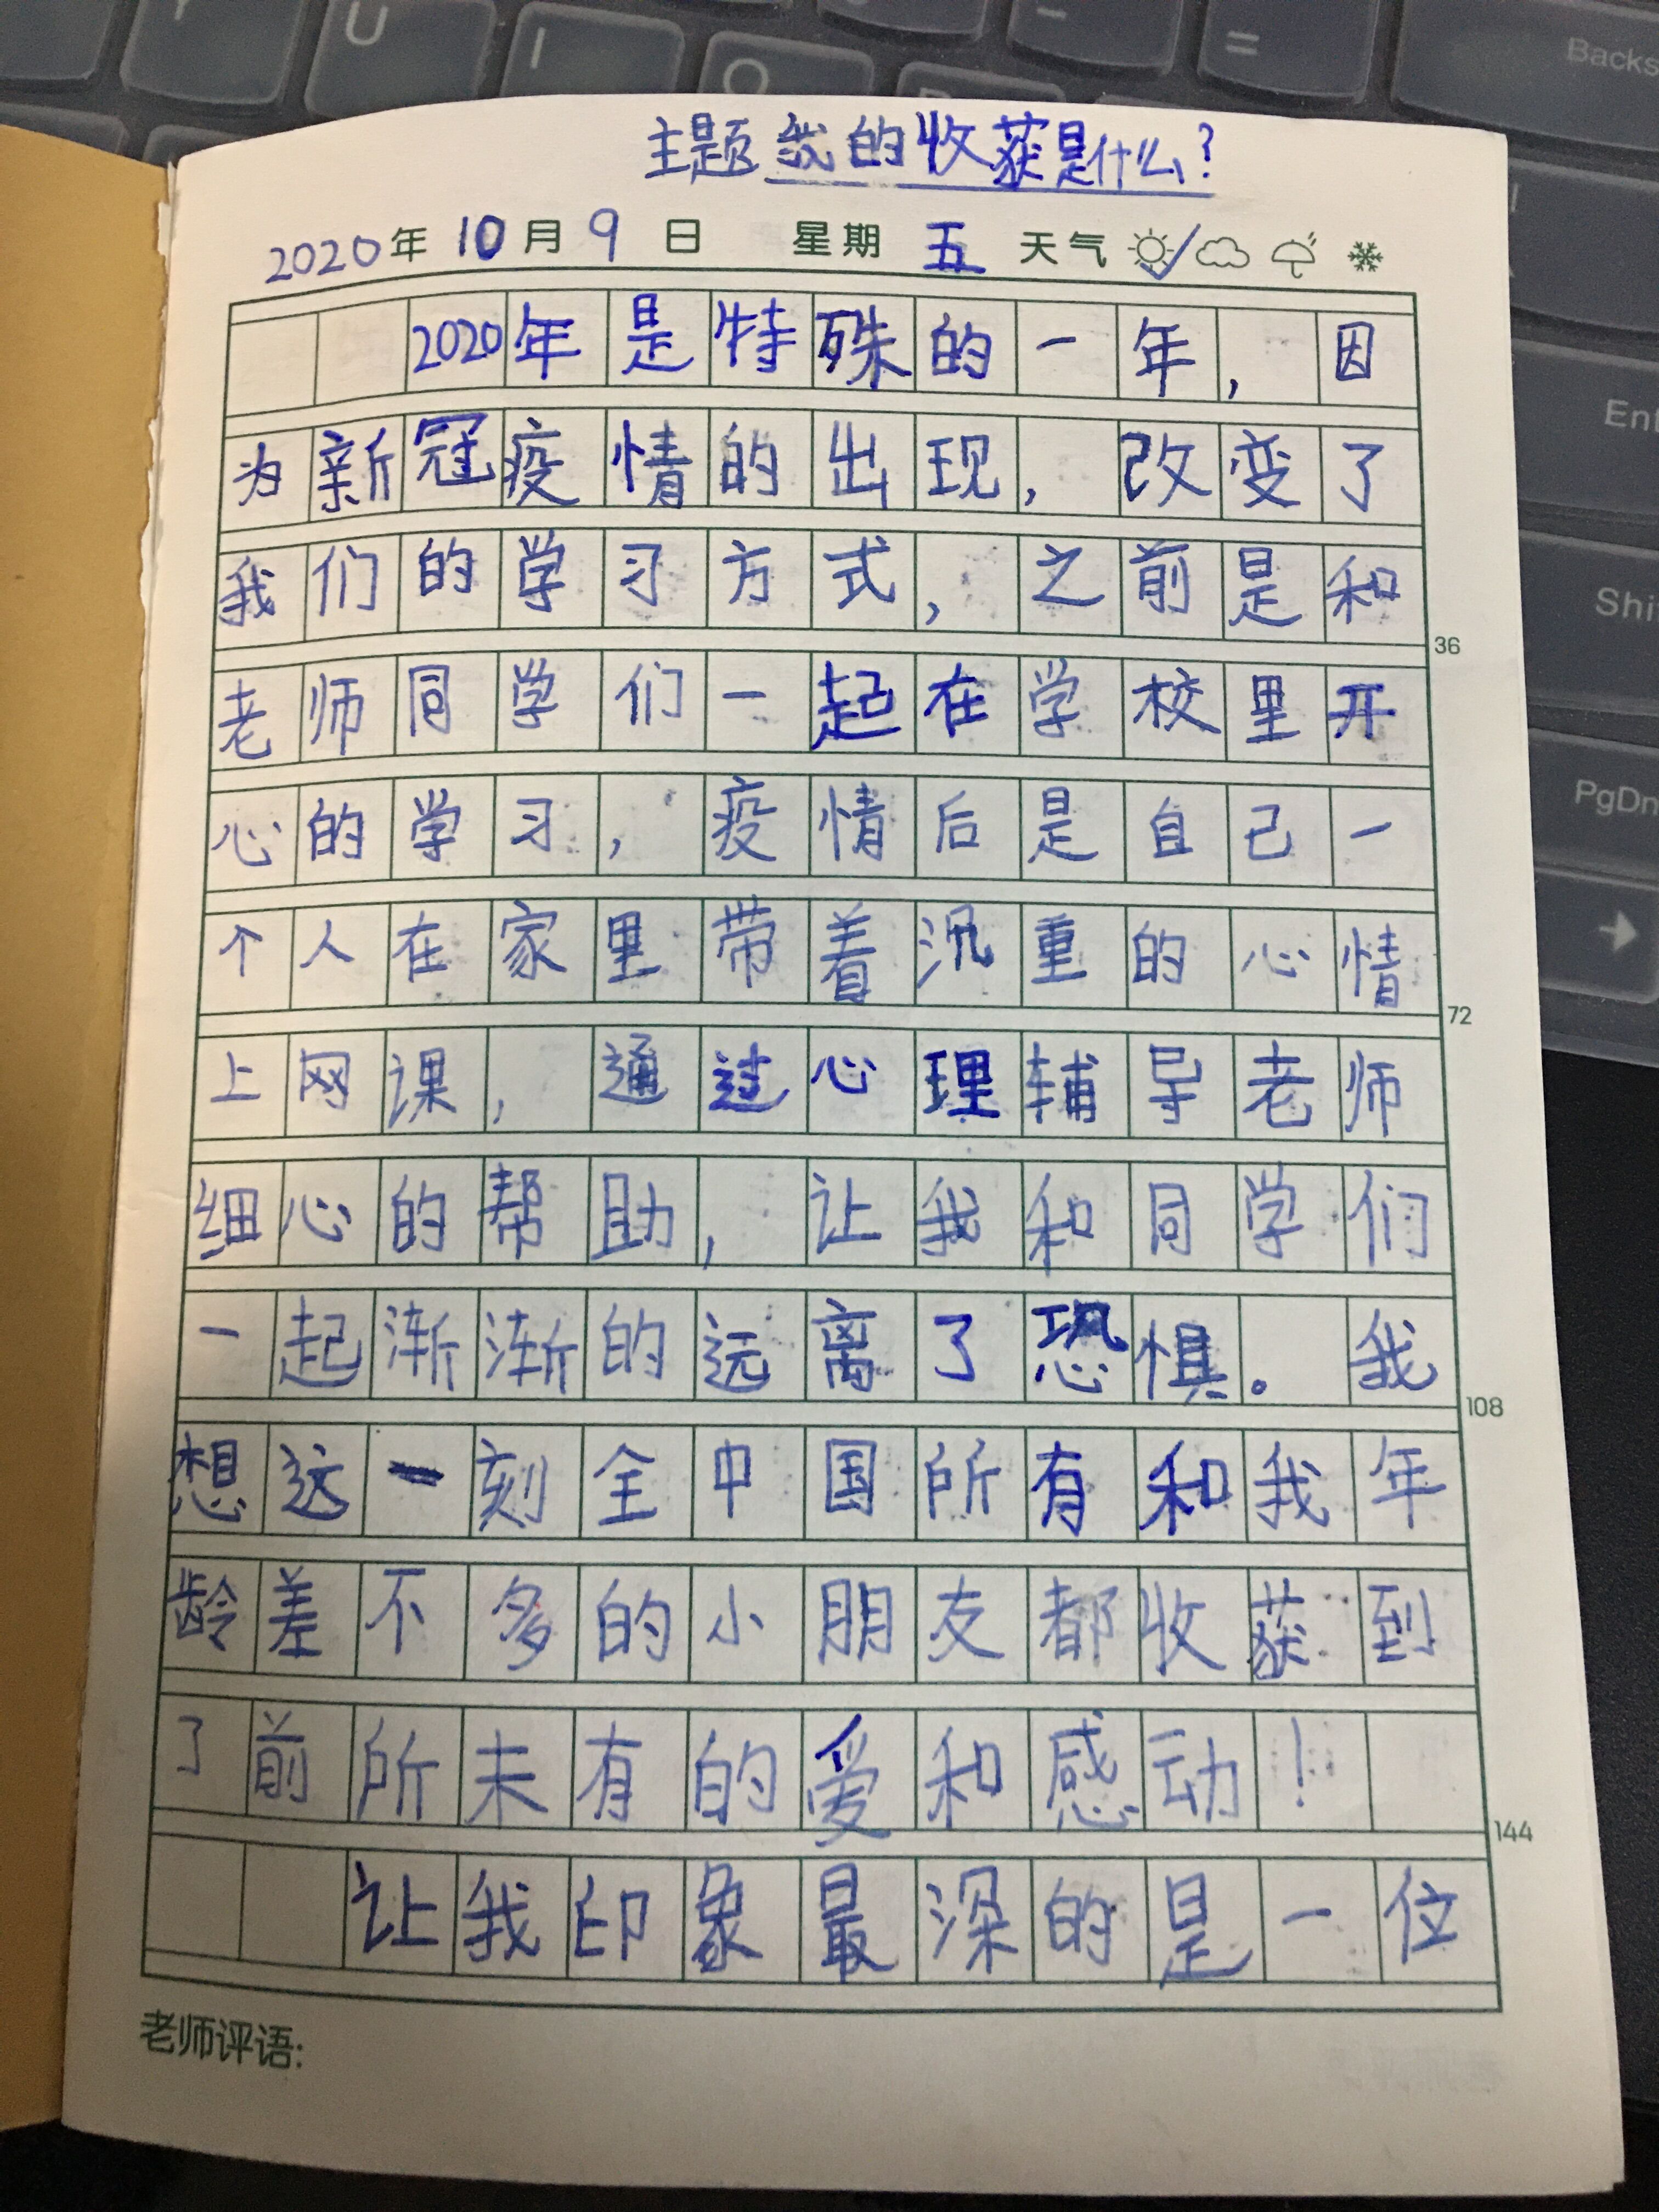 主题 我的收获是什么？
2020年 10月 9日 星期 五 天气
2020年是特殊的一年，因
为新冠疫情的出现，改变了
我们的学习方式，之前是和
36
老师同学们一起在学校里开
心的学习，疫情后是自己一
个人在家里带着沉重的心情
72
上网课，通过心理辅导老师
细心的帮助，让我和同学们
一起渐渐的远离了恐惧。我
108
想这一刻全中国所有和我年
龄差不多的小朋友都收获到
了前所未有的爱和感动！
144
让我印象最深的是一位
老师评语:
U
I
O
-
=
Backs
Ent
Shi
PgDn